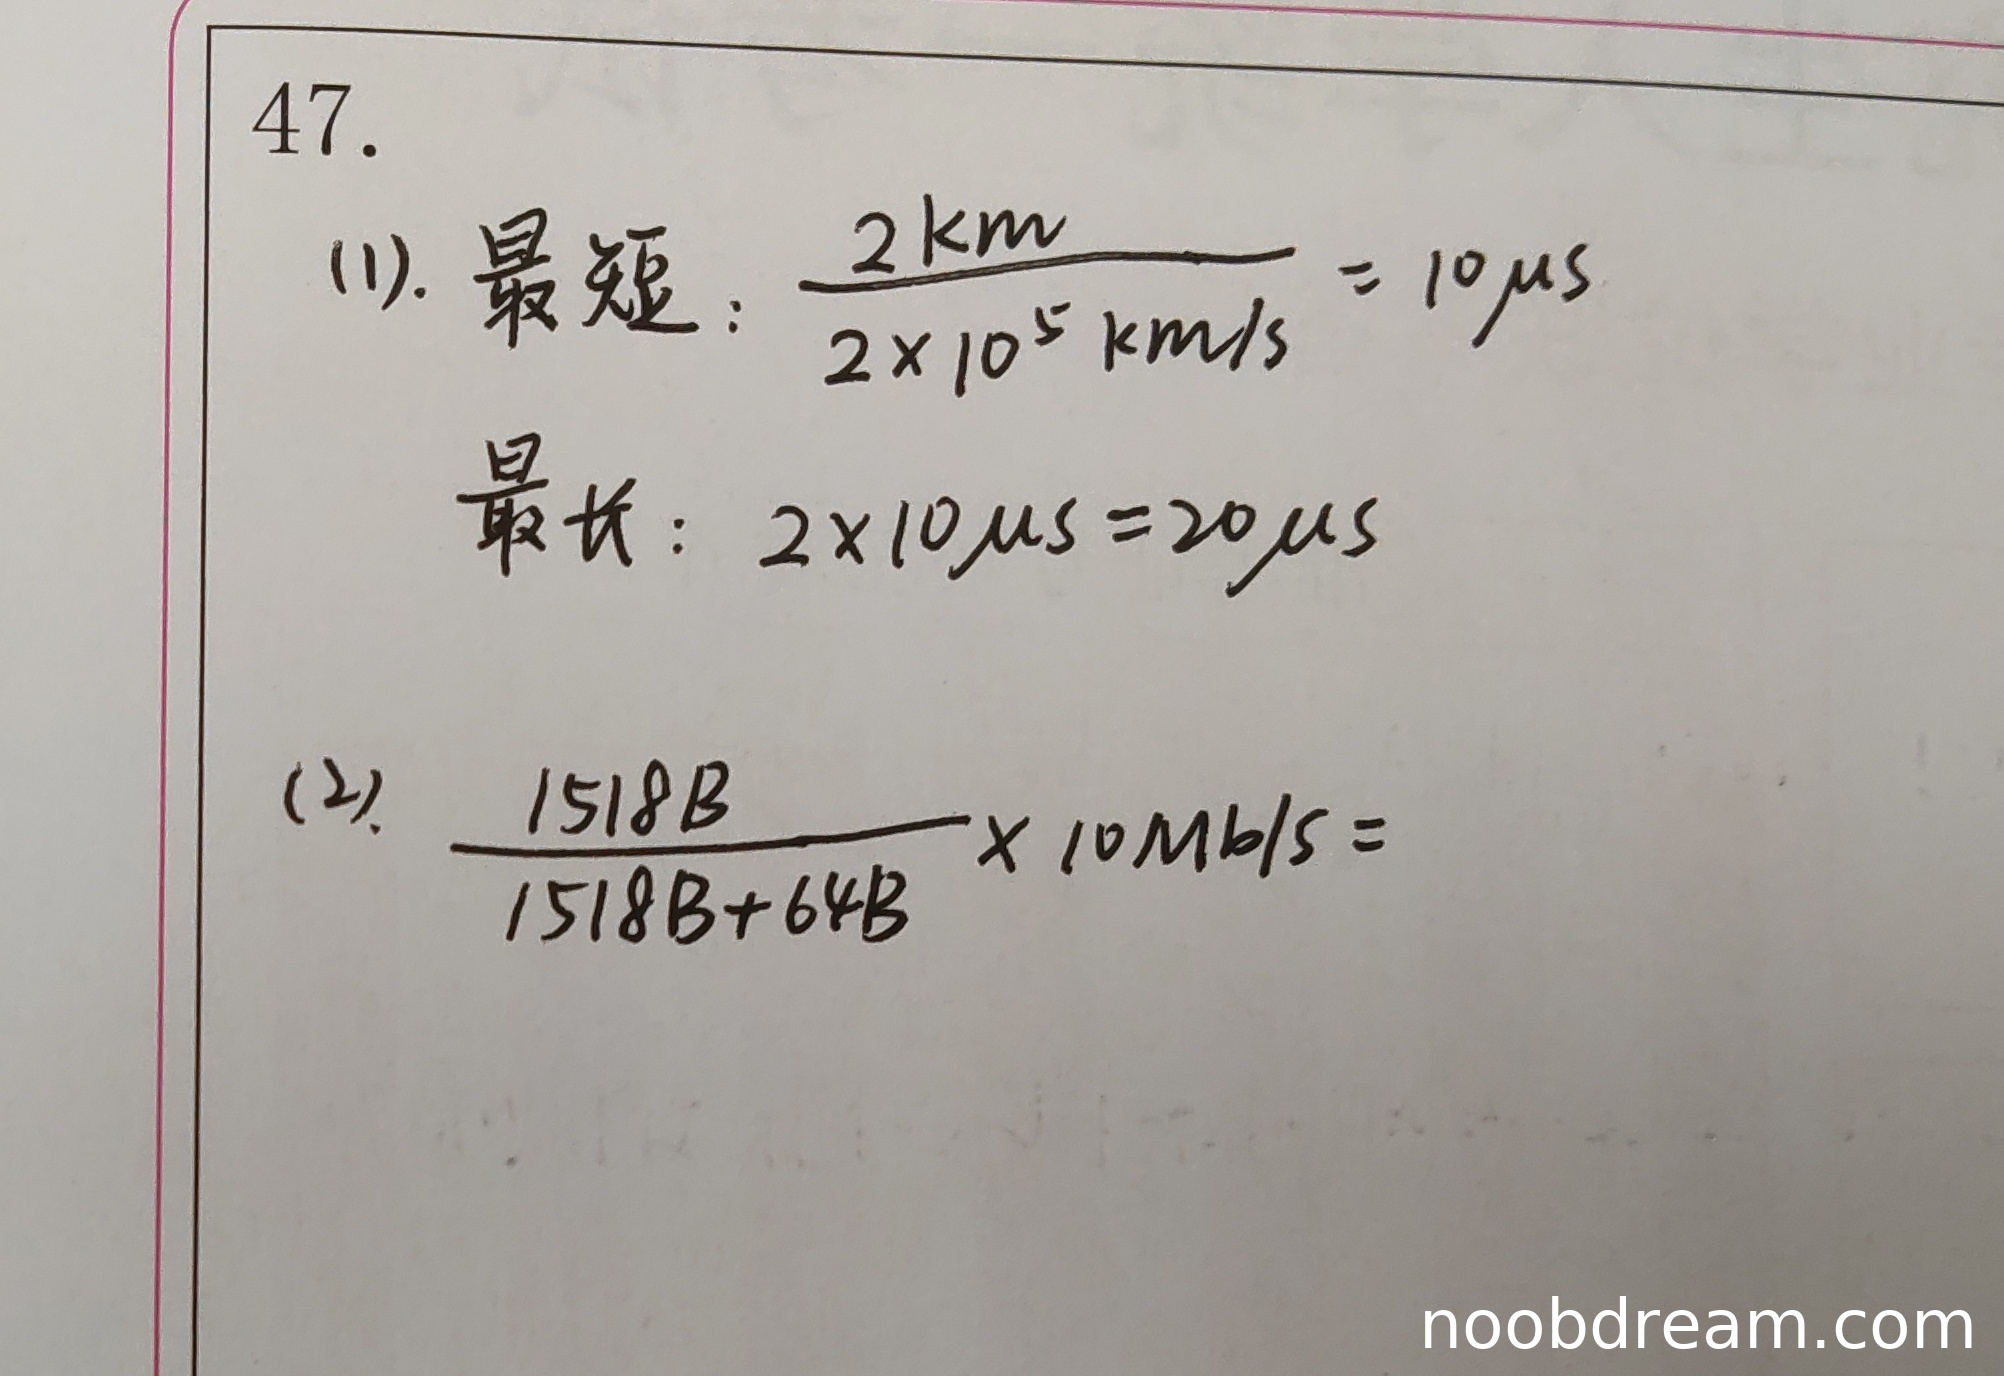 47.
(1). 最短: 2km / 2×10⁵ km/s = 10μs
最长: 2×10μs=20μs
(2). 1518B / 1518B+64B × 10Mb/s =
noobdream.com